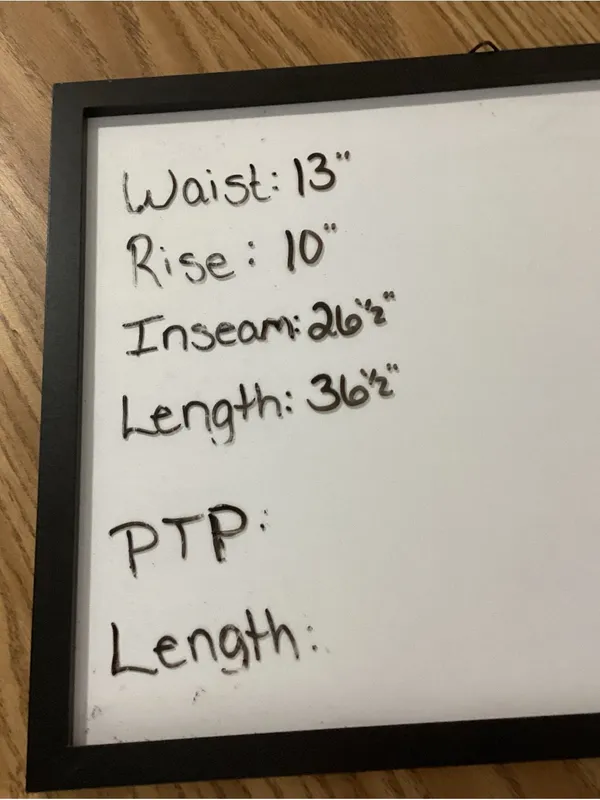 Waist: 13"
Rise: 10"
Inseam: 26 1/2"
Length: 36 1/2"
PTP:
Length: